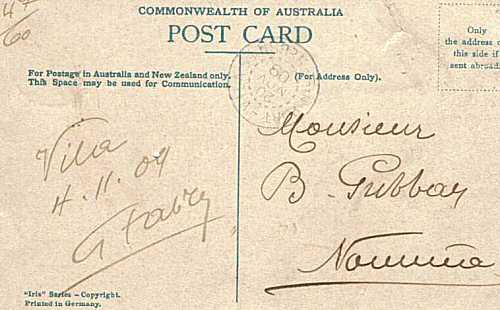 4
60
COMMONWEALTH OF AUSTRALIA
POST CARD
Only
the address o
this side if
sent abroad
For Postage in Australia and New Zealand only.
This Space may be used for Communication.
(For Address Only).
Vila
4.11.09
G Fabry
Monsieur
B. Gubbay
Nouméa
"Iris" Series - Copyright.
Printed in Germany.